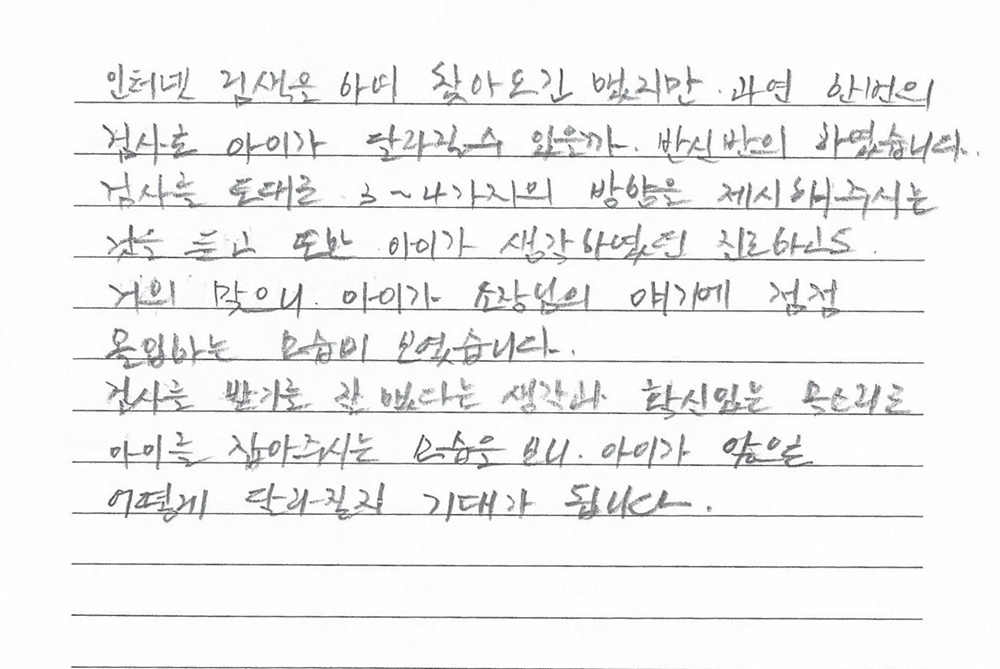 인터넷 검색을 하여 찾아오긴 했지만. 과연 한번의
검사로 아이가 달라질수 있을까. 반신반의 하였습니다.
검사를 토대로 3~4가지의 방향을 제시해주시는
것을 듣고 또한 아이가 생각하였던 진로하고도
거의 맞으니. 아이가 소장님의 얘기에 점점
몰입하는 모습이 보였습니다.
검사를 받기를 잘 했다는 생각과 확신있는 목소리로
아이를 잡아주시는 모습을 보니. 아이가 앞으로
어떻게 달라질지 기대가 됩니다.